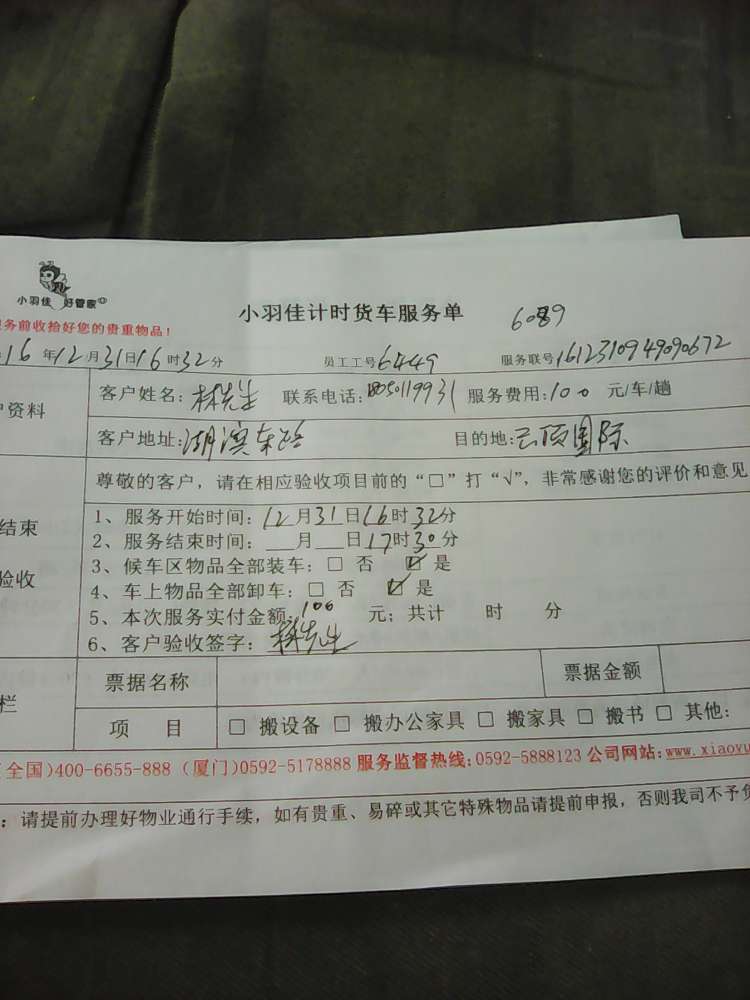 小羽佳 好管家
小羽佳计时货车服务单
6089
务前收拾好您的贵重物品！
16年12月31日16时32分 员工工号6449 服务联号1612310949090672
户资料
客户姓名：林先生 联系电话： 服务费用：100 元/车/趟
客户地址：湖滨东路 目的地：云顶国际
尊敬的客户，请在相应验收项目前的“□”打“√”，非常感谢您的评价和意见
结束
验收
1、服务开始时间：12月31日16时32分
2、服务结束时间：__月__日17时30分
3、候车区物品全部装车：□ 否 ☑ 是
4、车上物品全部卸车：□ 否 ☑ 是
5、本次服务实付金额：100 元；共计 时 分
6、客户验收签字：林先生
栏
票据名称 票据金额
项 目 □ 搬设备 □ 搬办公家具 □ 搬家具 □ 搬书 □ 其他：
(全国)400-6655-888 (厦门)0592-5178888 服务监督热线：0592-5888123 公司网站：www.xiaoyu
：请提前办理好物业通行手续，如有贵重、易碎或其它特殊物品请提前申报，否则我司不予